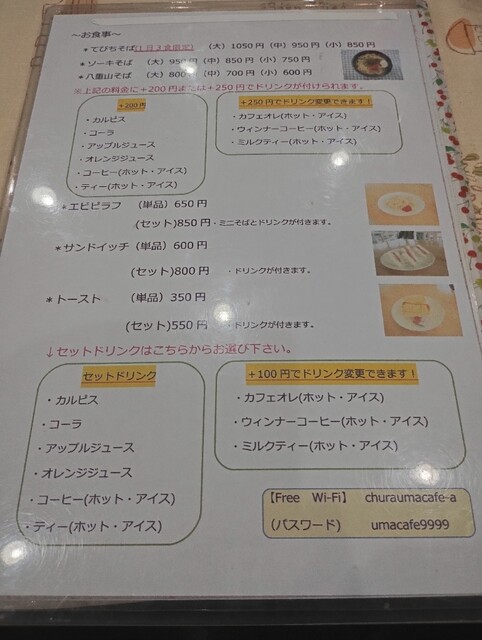 ～お食事～
＊てびちそば(1日2食限定) （大）1050円（中）950円（小）850円
＊ソーキそば （大）950円（中）850円（小）750円
＊八重山そば （大）800円（中）700円（小）600円
※上記の料金に＋200円または＋250円でドリンクが付けられます。
＋200円
・カルピス
・コーラ
・アップルジュース
・オレンジジュース
・コーヒー(ホット・アイス)
・ティー(ホット・アイス)
＋250円でドリンク変更できます！
・カフェオレ(ホット・アイス)
・ウィンナーコーヒー(ホット・アイス)
・ミルクティー(ホット・アイス)
＊エビピラフ （単品）650円
(セット)850円・ミニそばとドリンクが付きます。
＊サンドイッチ（単品）600円
(セット)800円 ・ドリンクが付きます。
＊トースト （単品）350円
(セット)550円 ・ドリンクが付きます。
↓セットドリンクはこちらからお選び下さい。
セットドリンク
・カルピス
・コーラ
・アップルジュース
・オレンジジュース
・コーヒー(ホット・アイス)
・ティー(ホット・アイス)
＋100円でドリンク変更できます！
・カフェオレ(ホット・アイス)
・ウィンナーコーヒー(ホット・アイス)
・ミルクティー(ホット・アイス)
【Free Wi-Fi】 churaumacafe-a
（パスワード） umacafe9999